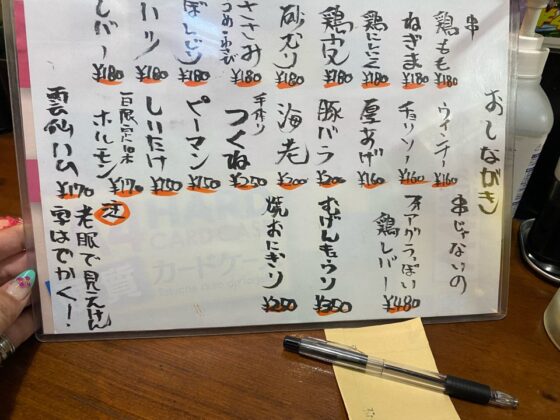 おしながき
串
鶏もも ¥180
ねぎま ¥180
鶏にんにく ¥180
鶏皮 ¥180
砂ずり ¥180
ささみ
うめ・わさび ¥180
ぼんじり ¥180
ハツ ¥180
レバー ¥180
ウィンナー ¥160
チョリソー ¥160
厚あげ ¥160
豚バラ ¥200
海老 ¥200
手作り
つくね ¥250
ピーマン ¥150
しいたけ ¥150
一日限定10本
ホルモン ¥170
雲仙ハム ¥170
串じゃないの
フォアグラっぽい
鶏レバー ¥480
むげんキュウリ ¥350
焼おにぎり ¥250
老眼で見えんけん
字はでかく!